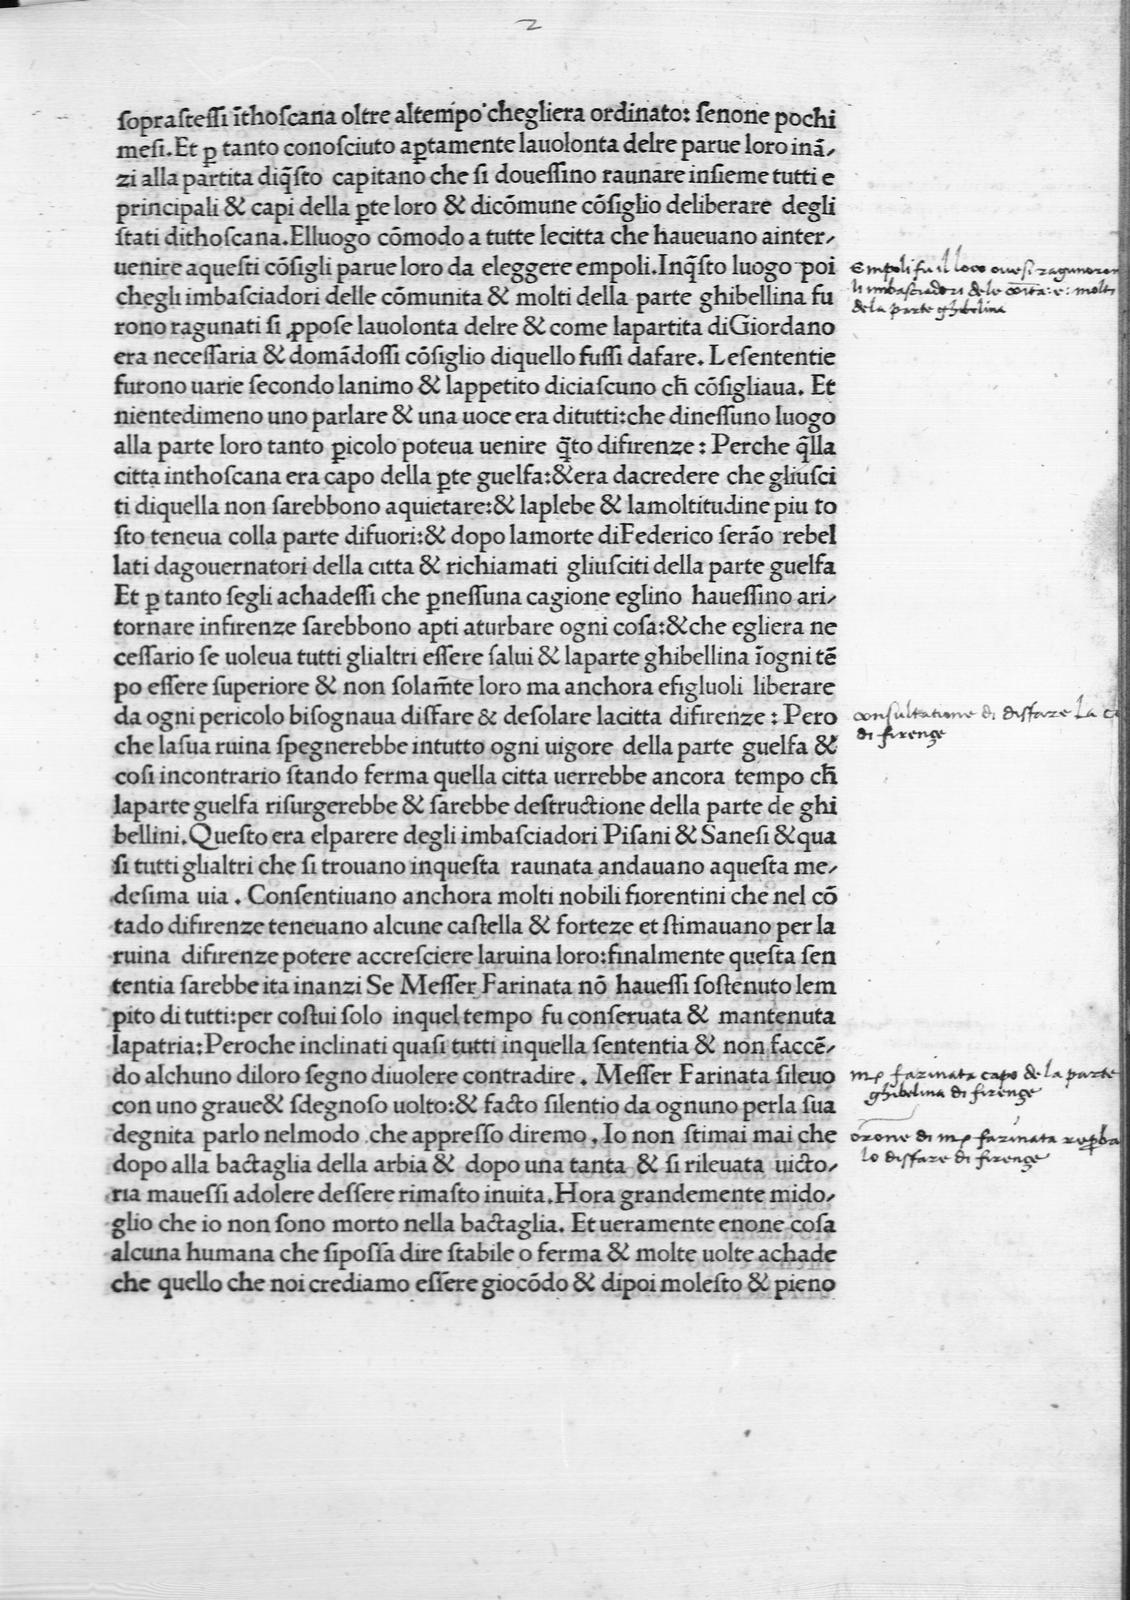 2
sopraſteſſi ĩthoſcana oltre altempo chegliera ordinato: ſenone pochi
meſi. Et ꝑ tanto conoſciuto aꝑtamente lauolonta delre parue loro inã/
zi alla partita diq̃ſto capitano che ſi doueſſino raunare inſieme tutti e
principali & capi della ꝑte loro & dicõmune cõſiglio deliberare degli
ſtati dithoſcana. Elluogo cõmodo a tutte lecitta che haueuano ainter/
uenire aqueſti cõſigli parue loro da eleggere empoli. Inq̃ſto luogo poi
chegli imbaſciadori delle cõmunita & molti della parte ghibellina fu
rono ragunati ſi ꝓpoſe lauolonta delre & come lapartita diGiordano
era neceſſaria & domãdoſſi cõſiglio diquello fuſſi dafare. Leſententie
furono uarie ſecondo lanimo & lappetito diciaſcuno ch̃ cõſigliaua. Et
nientedimeno uno parlare & una uoce era ditutti: che dineſſuno luogo
alla parte loro tanto ꝑicolo poteua uenire q̃to difirenze: Perche q̃lla
citta inthoſcana era capo della ꝑte guelfa: & era dacredere che gliuſci
ti diquella non ſarebbono aquietare: & laplebe & lamoltitudine piu to
ſto teneua colla parte difuori: & dopo lamorte diFederico ſerão rebel
lati dagouernatori della citta & richiamati gliuſciti della parte guelfa
Et ꝑ tanto ſegli achadeſſi che ꝑneſſuna cagione eglino haueſſino ari/
tornare infirenze ſarebbono apti aturbare ogni coſa: & che egliera ne
ceſſario ſe uoleua tutti glialtri eſſere ſalui & laparte ghibellina ĩogni tẽ
po eſſere ſuperiore & non ſolam̃te loro ma anchora efigluoli liberare
da ogni pericolo biſognaua disfare & deſolare lacitta difirenze: Pero
che laſua ruina ſpegnerebbe intutto ogni uigore della parte guelfa &
coſi incontrario ſtando ferma quella citta uerrebbe ancora tempo ch̃
laparte guelfa riſurgerebbe & ſarebbe deſtructione della parte de ghi
bellini. Queſto era elparere degli imbaſciadori Piſani & Saneſi & qua
ſi tutti glialtri che ſi trouano inqueſta raunata andauano aqueſta me/
deſima uia. Conſentiuano anchora molti nobili fiorentini che nel cõ
tado difirenze teneuano alcune caſtella & forteze et ſtimauano per la
ruina difirenze potere accreſciere laruina loro: finalmente queſta ſen
tentia ſarebbe ita inanzi Se Meſſer Farinata nõ haueſſi ſoſtenuto lem
pito di tutti: per coſtui ſolo inquel tempo fu conſeruata & mantenuta
lapatria: Peroche inclinati quaſi tutti inquella ſententia & non faccẽ/
do alchuno diloro ſegno diuolere contradire. Meſſer Farinata ſileuo
con uno graue & ſdegnoſo uolto: & facto ſilentio da ognuno perla ſua
degnita parlo nelmodo che appreſſo diremo. Io non ſtimai mai che
dopo alla bactaglia della arbia & dopo una tanta & ſi rileuata uicto/
ria maueſſi adolere deſſere rimaſto inuita. Hora grandemente mido/
glio che io non ſono morto nella bactaglia. Et ueramente enone coſa
alcuna humana che ſipoſſa dire ſtabile o ferma & molte uolte achade
che quello che noi crediamo eſſere giocõdo & dipoi moleſto & pieno
Empoli fu il loco oue si ragunoron
li imbasciadori de le cõita: e: molti
de la parte ghibelina
consultatione di disfare La
di firenze
m. farinata capo de la parte
ghibelina di firenze
orone di m. farinata
lo disfare di firenze